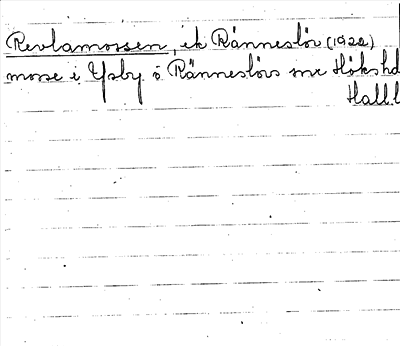 Revlamossen, ek Ränneslöv (1922)
mosse i Ysby o. Ränneslövs snr Höks hd
Hall. l